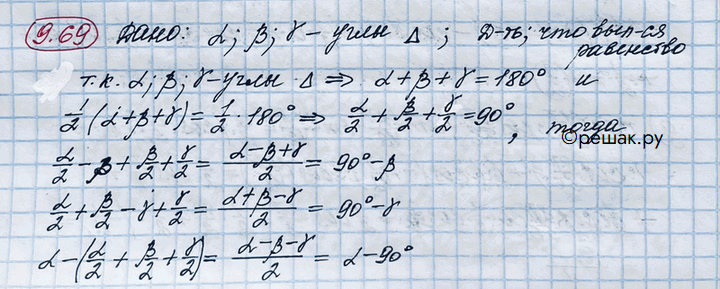 9.69 Дано: α; β; γ – углы Δ; Д-ть; что вып-ся
равенство
т.к. α; β; γ – углы Δ ⇒ α+β+γ=180° и
1/2 (α+β+γ) = 1/2 · 180° ⇒ α/2 + β/2 + γ/2 = 90°, тогда
©решак.ру
α/2 - β + β/2 + γ/2 = (α-β+γ)/2 = 90°-β
α/2 + β/2 - γ + γ/2 = (α+β-γ)/2 = 90°-γ
α-(α/2 + β/2 + γ/2) = (α-β-γ)/2 = α-90°